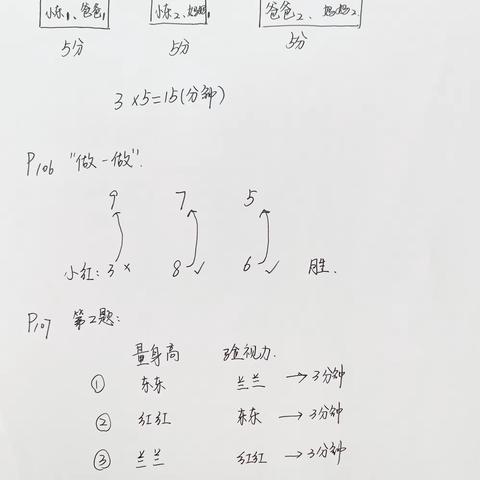 小东1、爸爸1 小东2、妈妈1 爸爸2、妈妈2
5分 5分 5分
3×5=15(分钟)
P106 "做一做".
9 7 5
小红: 3 × 8 ✓ 6 ✓ 胜.
P107 第2题:
量身高 验视力.
① 东东 兰兰 → 3分钟
② 红红 东东 → 3分钟
③ 兰兰 红红 → 3分钟